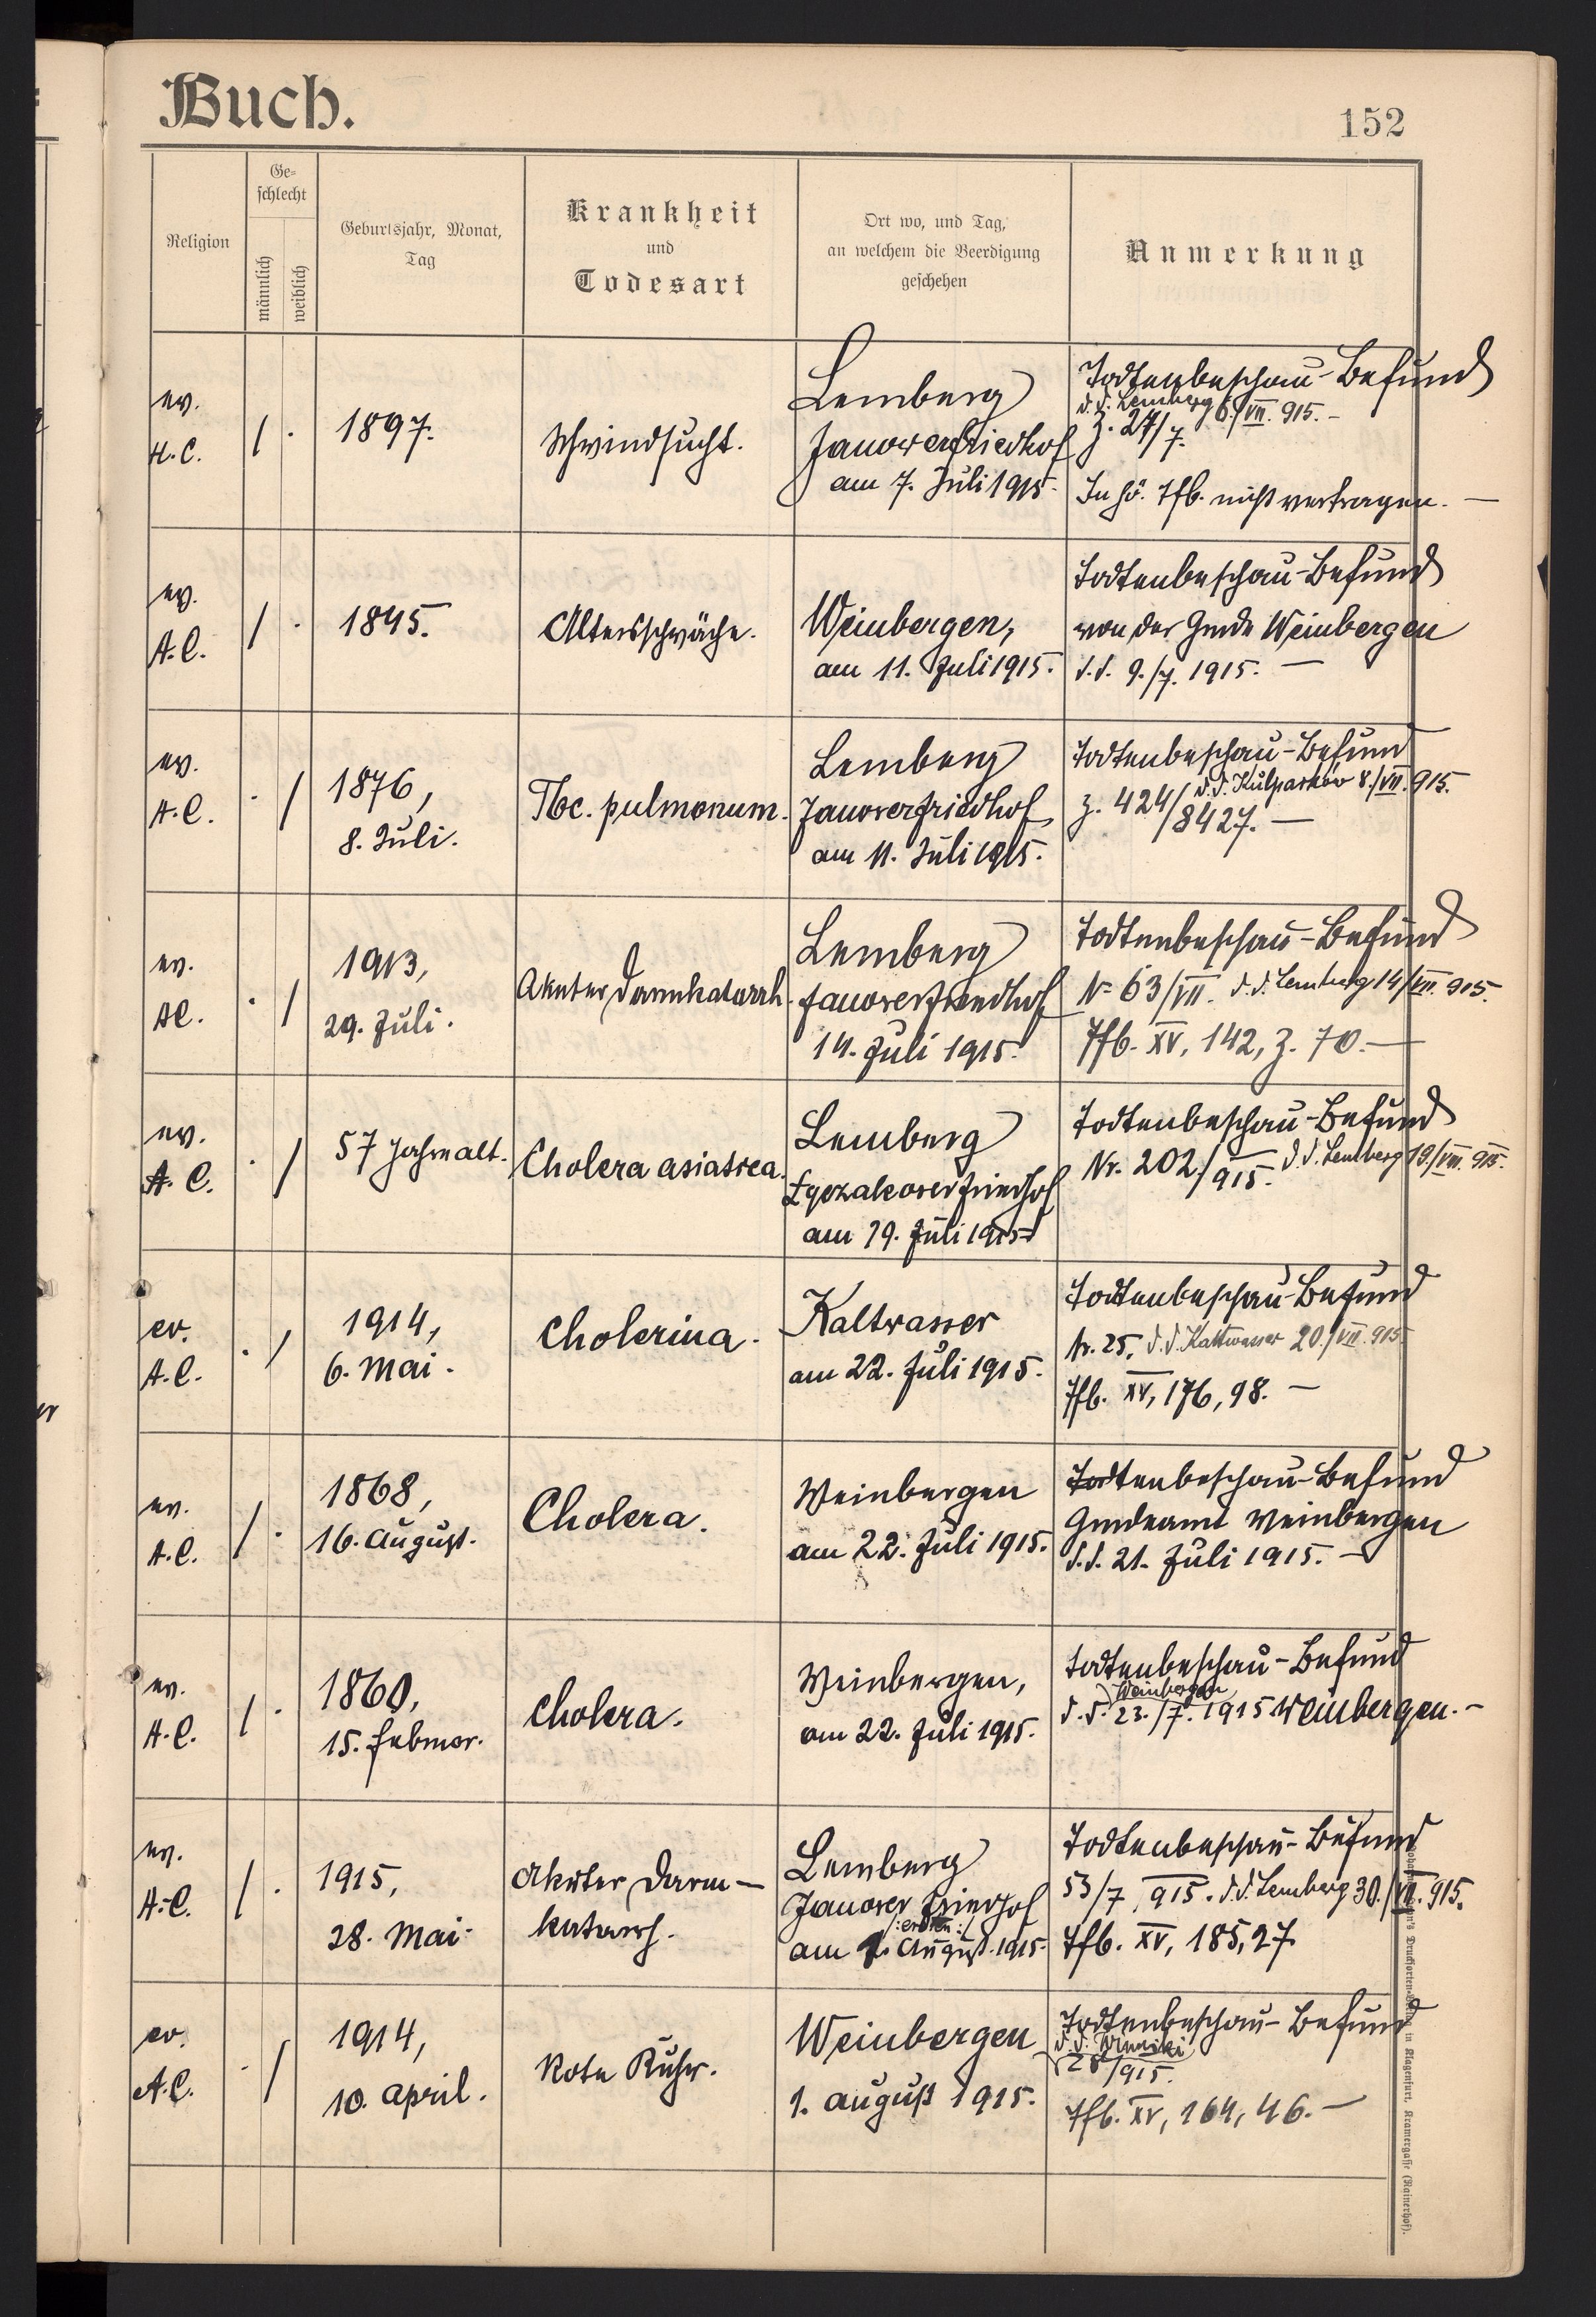 Buch.
152
Religion
Ge=
schlecht
männlich
weiblich
Geburtsjahr, Monat,
Tag
Krankheit
und
Todesart
Ort wo, und Tag,
an welchem die Beerdigung
geschehen
Anmerkung
ev.
H.C.
/ .
1897.
Schwindsucht.
Lemberg
Janowerfriedhof
am 7. Juli 1915.
Todtenbeschau-Befund
d.d. Lemberg 6./VII. 915. –
Z. 27/7.
In hö. Tfb. nicht vertragen. –
ev.
A.C.
/ .
1845.
Altersschwäche.
Weinbergen,
am 11. Juli 1915.
Todtenbeschau-Befund
von der Gmde Weinbergen
d.d. 9./7. 1915. –
ev.
A.C.
. /
1876,
8. Juli.
Tbc. pulmonum.
Lemberg
Janowerfriedhof
am 11. Juli 1915.
Todtenbeschau-Befund
d.d. Kulparków 8./VII. 915.
Z. 424/8427. –
ev.
AC.
. /
1913,
29. Juli.
Akuter Darmkatarrh.
Lemberg
Janowerfriedhof
14. Juli 1915.
Todtenbeschau-Befund
No 63/VII. d.d. Lemberg 14/VII. 915.
Tfb. XV, 142, Z. 70. –
ev.
A. C.
. /
57 Jahre alt.
Cholera asiatica.
Lemberg
am 19. Juli 1915
Todtenbeschau-Befund
Nr. 202/915. d.d. Lemberg 19/VII. 915.
ev.
A.C.
. /
1914,
6. Mai.
Cholerina.
Kaltwasser
am 22. Juli 1915.
Todtenbeschau-Befund
Nr. 25, d.d. Kaltwasser 20./VII. 915.
Tfb. XV, 176, 98. –
ev.
A.C.
/ .
1868,
16. August.
Cholera.
Weinbergen
am 22. Juli 1915.
Todtenbeschau-Befund
Gmdeamt Weinbergen
d.d. 21. Juli 1915. –
ev.
A.C.
/ .
1860,
15. Februar.
Cholera.
Weinbergen,
am 22. Juli 1915.
Todtenbeschau-Befund
Weinbergen
d.d. 23./7. 1915 Weinbergen. –
ev.
A.C.
/ .
1915,
28. Mai.
Akuter Darm-
katarrh.
Lemberg
Janower Friedhof
/:ersten:/
am 1. August 1915.
Todtenbeschau-Befund
53/7 915. d.d. Lemberg 30./VII. 915.
Tfb. XV, 185, 27.
ev.
A.C.
. /
1914,
10. April.
Rote Ruhr.
Weinbergen
1. August 1915.
Todtenbeschau-Befund
d.d. Winniki
28/915.
Tfb. XV, 164, 46. –
in Klagenfurt, Kramergasse (Rainerhof).